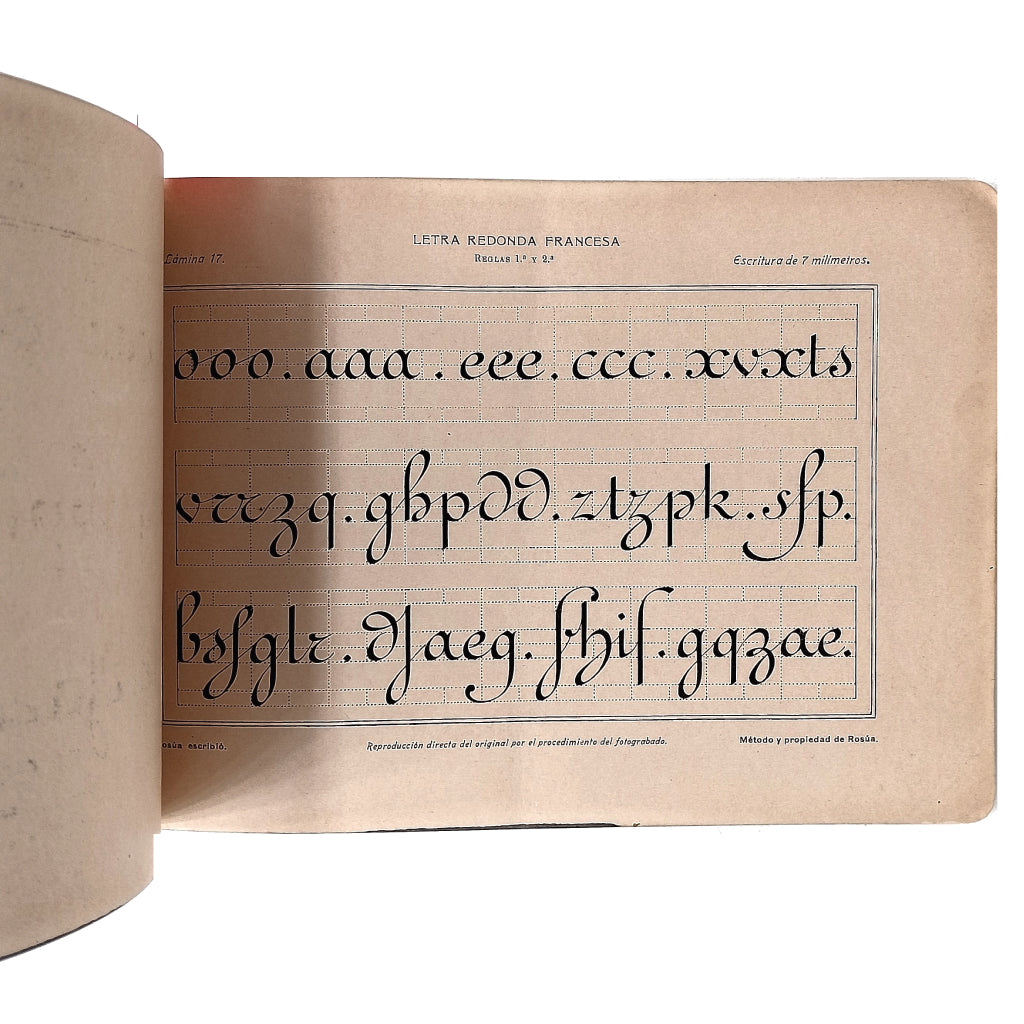 LETRA REDONDA FRANCESA
Lámina 17.
REGLAS 1.ª Y 2.ª
Escritura de 7 milímetros.
ooo. aaa. eee. ccc. xvxts
vrrzq. ghpdd. ztzpk. sſp.
bsſglr. dJaeg. ſhiſ. gqzae.
escribió.
Reproducción directa del original por el procedimiento del fotograbado.
Método y propiedad de Rosúa.